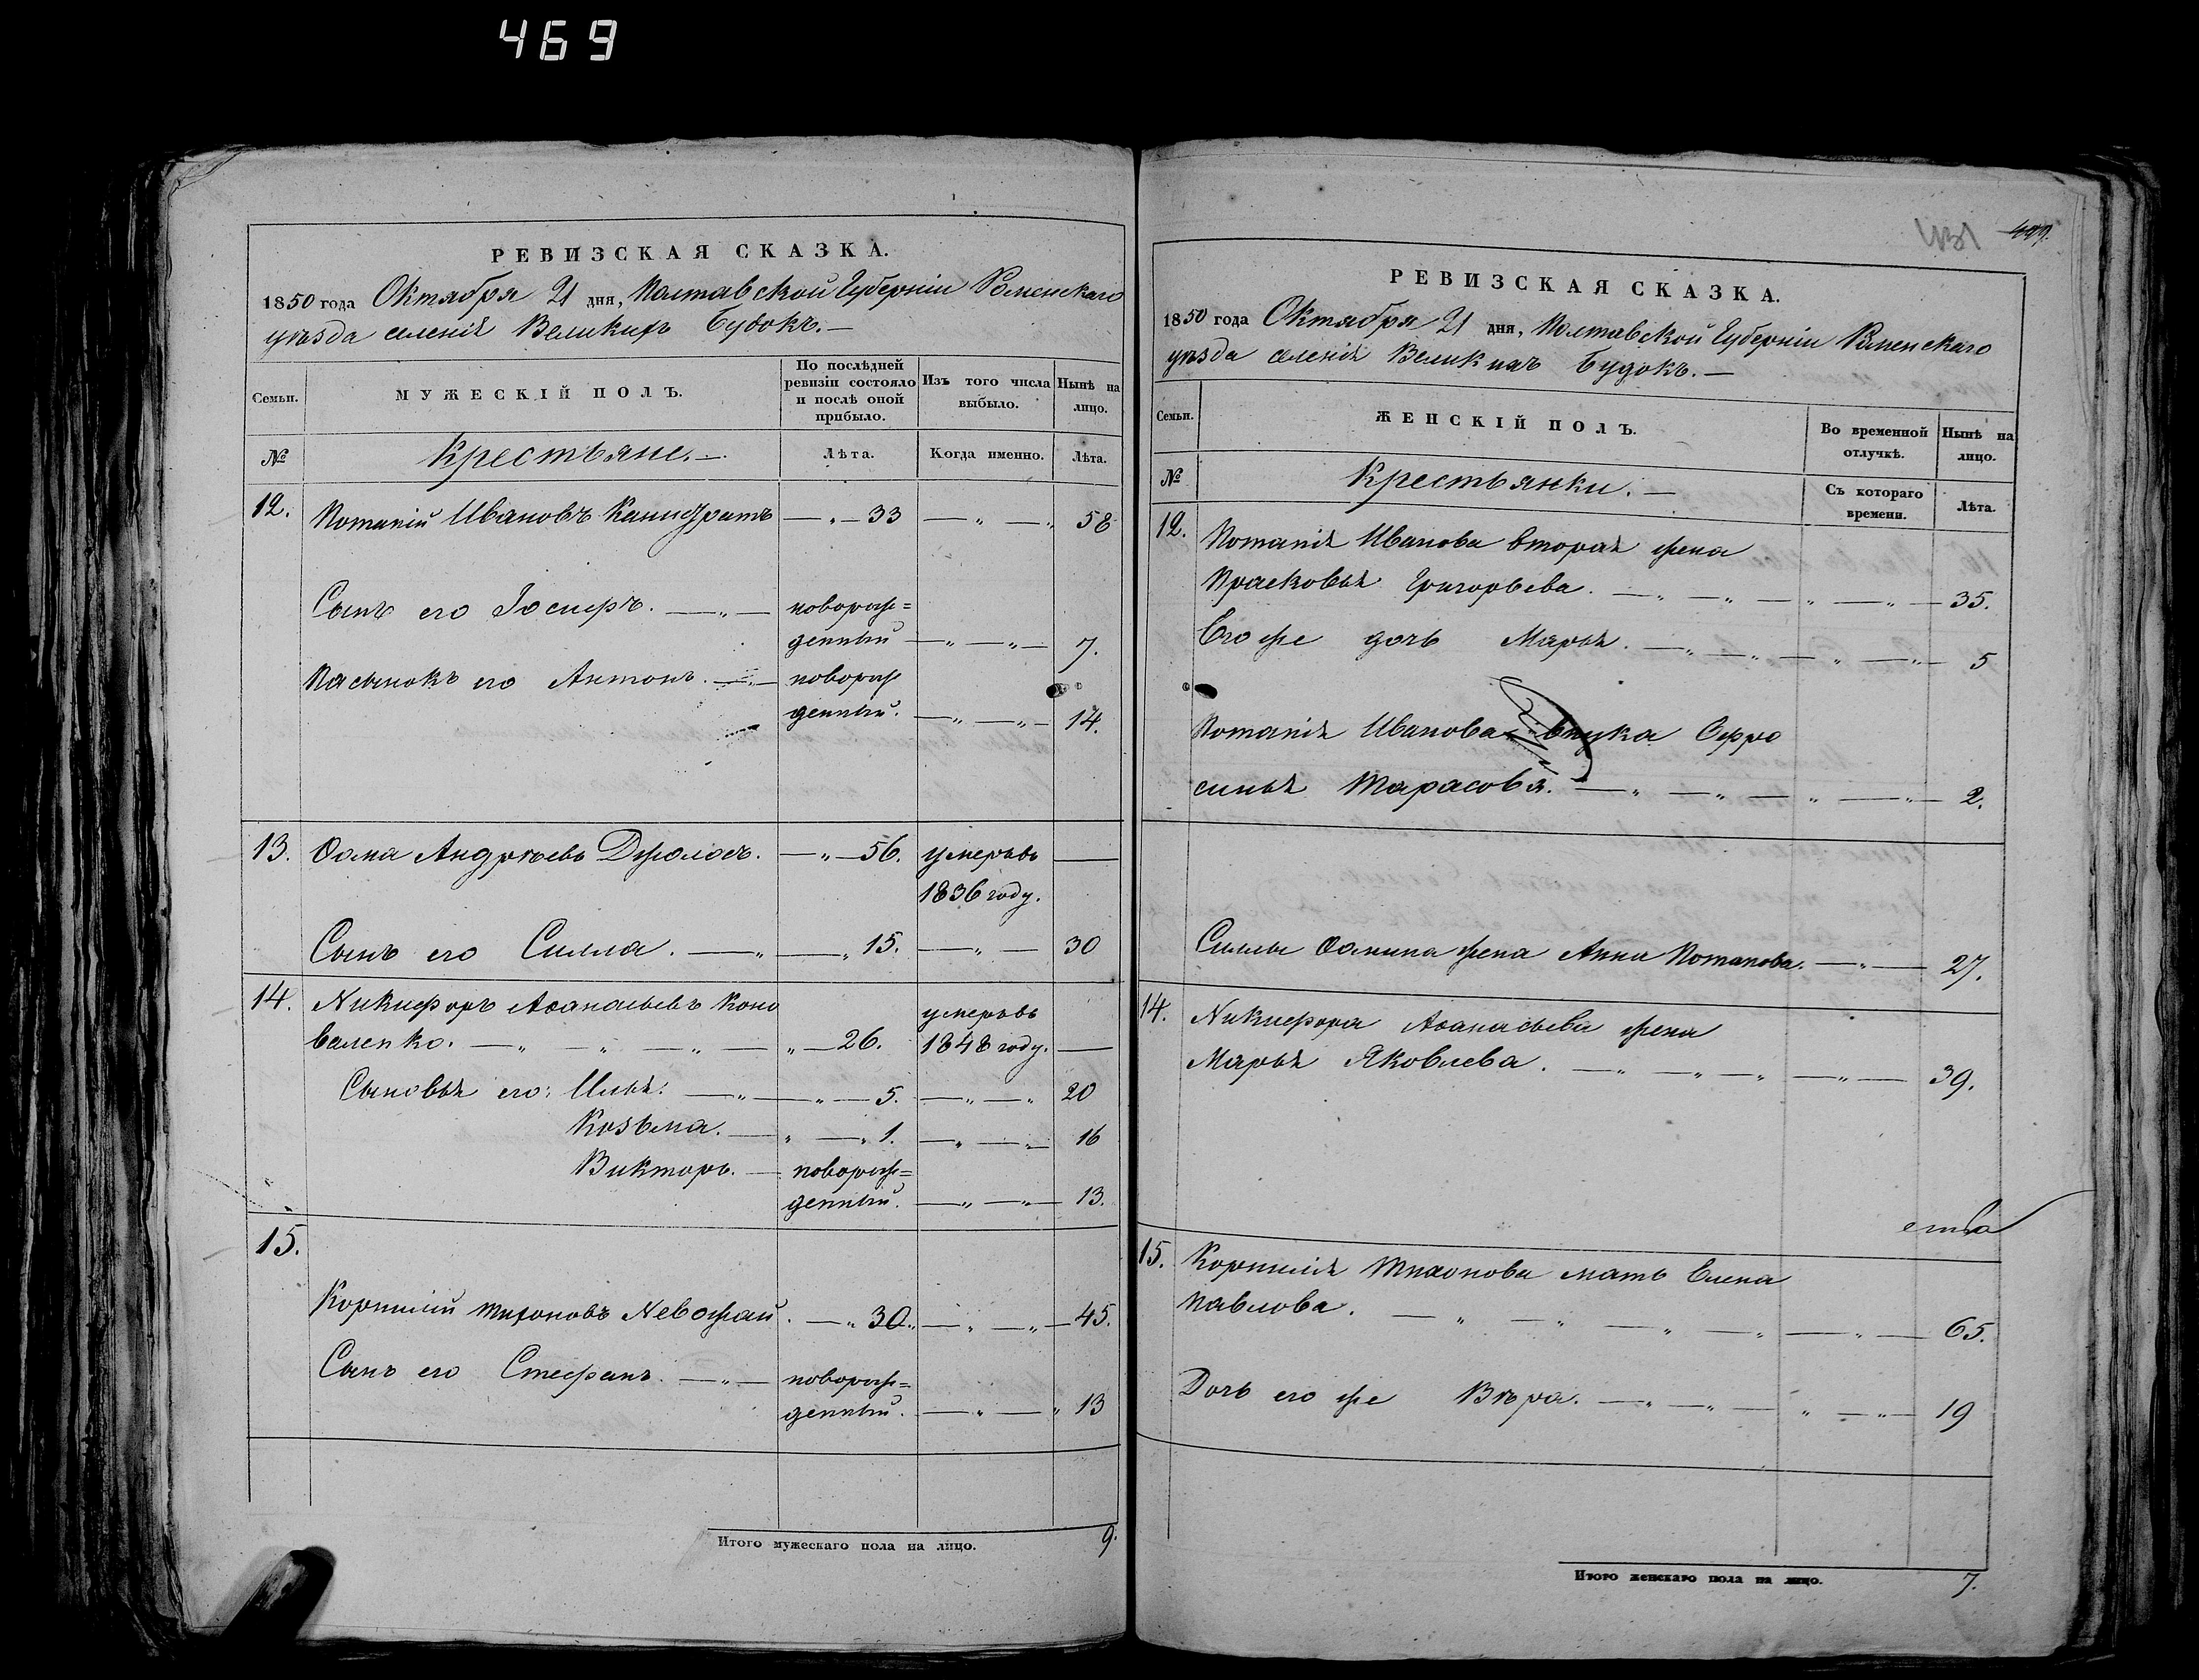 469
РЕВИЗСКАЯ СКАЗКА.
1850 года Октября 21 дня, Полтавской Губерніи Роменскаго
уѣзда селенія Великихъ Будокъ. —
Семьи.
МУЖЕСКІЙ ПОЛЪ.
По послѣдней ревизіи состояло и послѣ оной прибыло.
Изъ того числа выбыло.
Нынѣ на лицо.
№
Крестьяне. —
Лѣта.
Когда именно.
Лѣта.
12. Потапій Ивановъ — „ — 33 — „ — „ 58
Сынъ его Іосифъ. — „ — новорож=
денный — „ — „ — 7.
Пасынокъ его Антонъ. — „ — новорож
денный. — „ — „ — 14.
13. Ѳома Андрѣевъ Джолосъ. — „ — 56. умеръвъ —
1836 году.
Сынъ его Силла. — „ — „ 15. — „ — 30
14. Никифоръ Аѳанасьевъ Коно умеръвъ
валенко. — „ — „ — „ — „ — 26. 1848 году. —
Сыновья его: Илья. — „ — „ — 5. — „ — „ 20
Козьма. — „ — „ 1. — „ — „ — 16
Викторъ. — новорож=
денный. — „ — „ — 13.
15.
Корнилій Тихоновъ Невожай. — „ 30 „ — „ — „ — 45.
Сынъ его Стефанъ. — „ — новорож=
денный. — „ — „ 13
Итого мужескаго пола на лицо. 9.
431 449.
РЕВИЗСКАЯ СКАЗКА.
1850 года Октября 21 дня, Полтавской Губерніи Роменскаго
уѣзда селенія Великихъ Будокъ. —
Семьи.
ЖЕНСКІЙ ПОЛЪ.
Во временной отлучкѣ.
Нынѣ на лицо.
№
Крестьянки. —
Съ котораго времени.
Лѣта.
12. Потапія Иванова вторая жена
Прасковья Григорьева. — „ — „ — „ — „ — 35.
Его же дочь Марья. — „ — „ — „ — „ — 5
Потапія Иванова внука Офро
синья Тарасова. — „ — „ — „ — „ — 2.
Силлы Ѳомина жена Анна Потапова. — „ — 27.
14. Никифора Аѳанасьева жена
Марья Яковлева. — „ — „ — „ — „ — 39.
15. Корнилія Тихонова мать Елена
Павлова. — „ — „ — „ — „ — „ — 65.
Дочь его же Вѣра. — „ — „ — „ — „ — 19
Итого женскаго пола на лицо. 7.